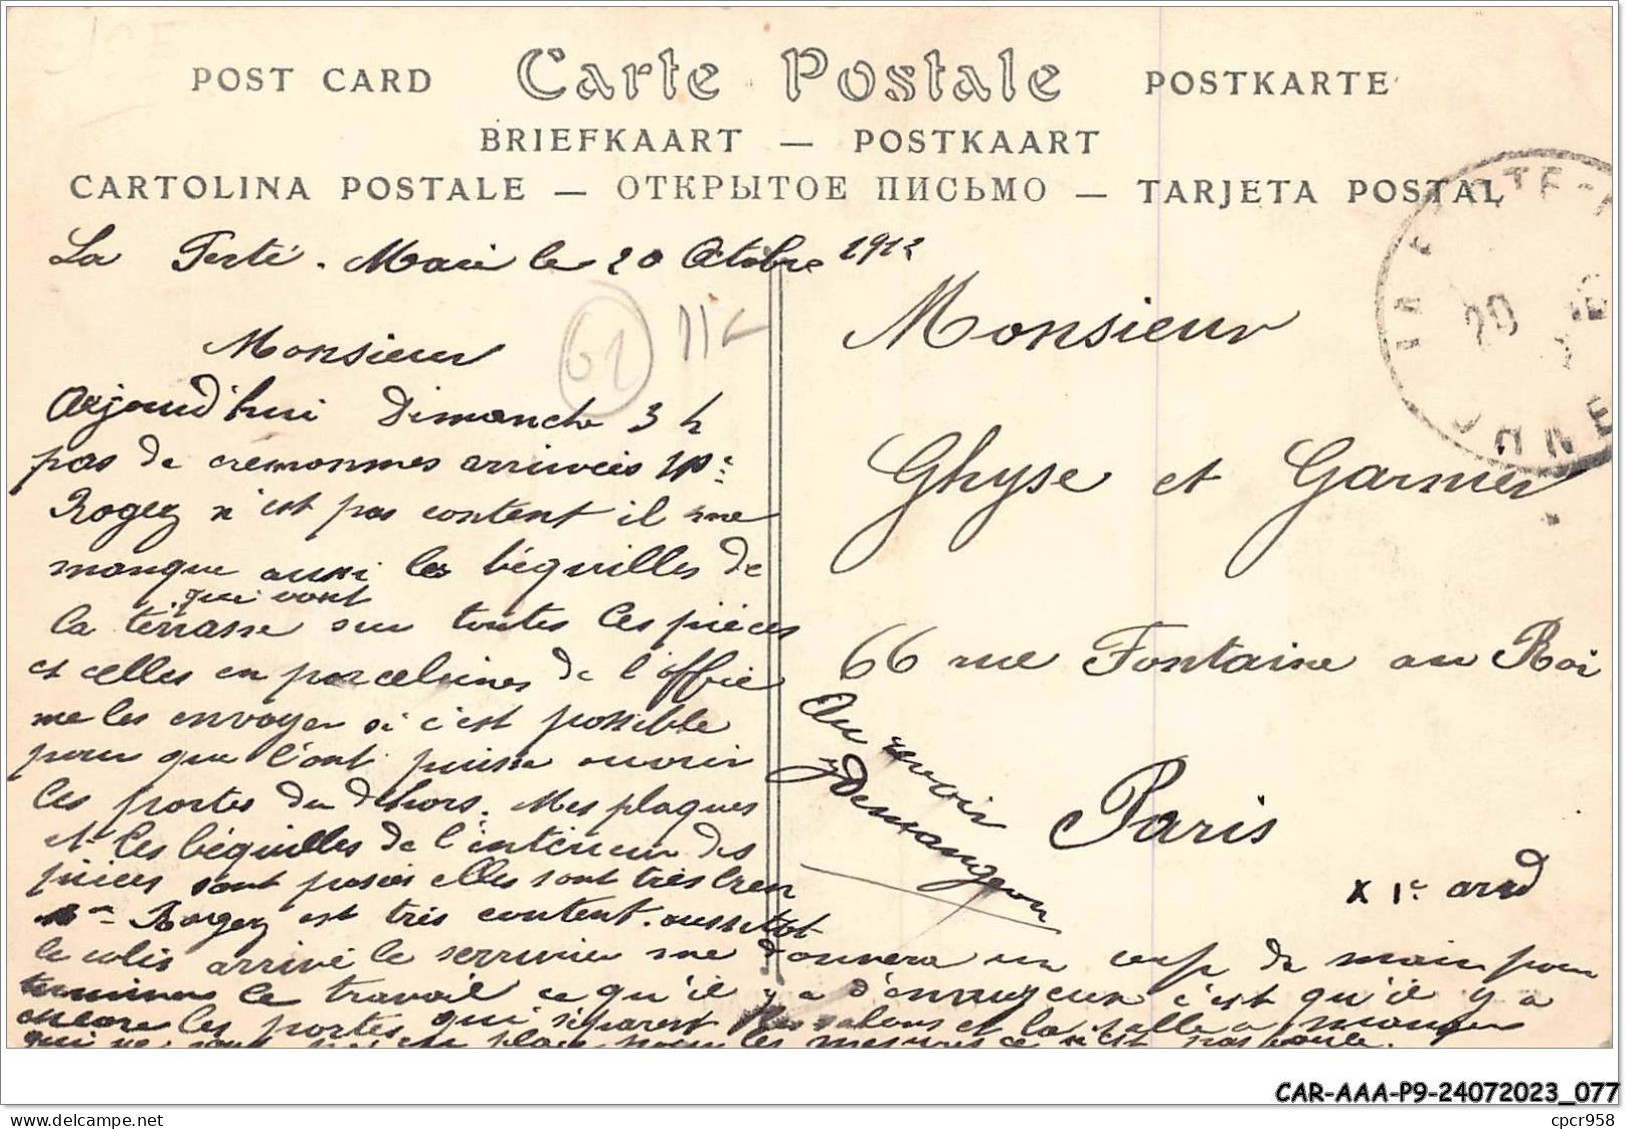 POST CARD Carte Postale POSTKARTE
BRIEFKAART — POSTKAART
CARTOLINA POSTALE — ОТКРЫТОЕ ПИСЬМО — TARJETA POSTAL
La Ferté-Macé le 20 Octobre 1912
61
20
ORNE
Monsieur
Aujourd'hui Dimanche 3 h
pas de cremonnes arrivées Mr
Rogez n'est pas content il me
manque aussi les béquilles de
qui vont
la terrasse sur toutes les pièces
et celles en porcelaines de l'office
me les envoyer si c'est possible
pour que l'ont puisse ouvrir
les portes du dehors. Mes plaques
et les béquilles de l'interieur des
pièces sont posées elles sont très bien
Rogez est très content. aussitot
le colis arrivé le serrurier me donnera un coup de main pour
terminer le travail ce qu'il y a d'ennuyeux c'est qu'il y a
encore les portes qui séparent les salons et la salle a manger
qui ne sont pas en place pour les mesures ce n'est pas
Au revoir
Demangeon
Monsieur
Ghyse et Garnier
66 rue Fontaine au Roi
Paris
XIe arrd
CAR-AAA-P9-24072023_077
cpcr958